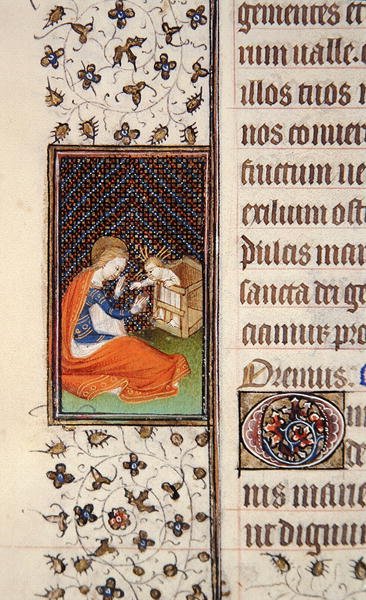 gementes et
rum ualle. e
illos tuos
nos conuer
fructum ue
exilium ost
Dulcis mar
sancta dei ge
camur pro
Oremus.
O
nis mane
ut dignum